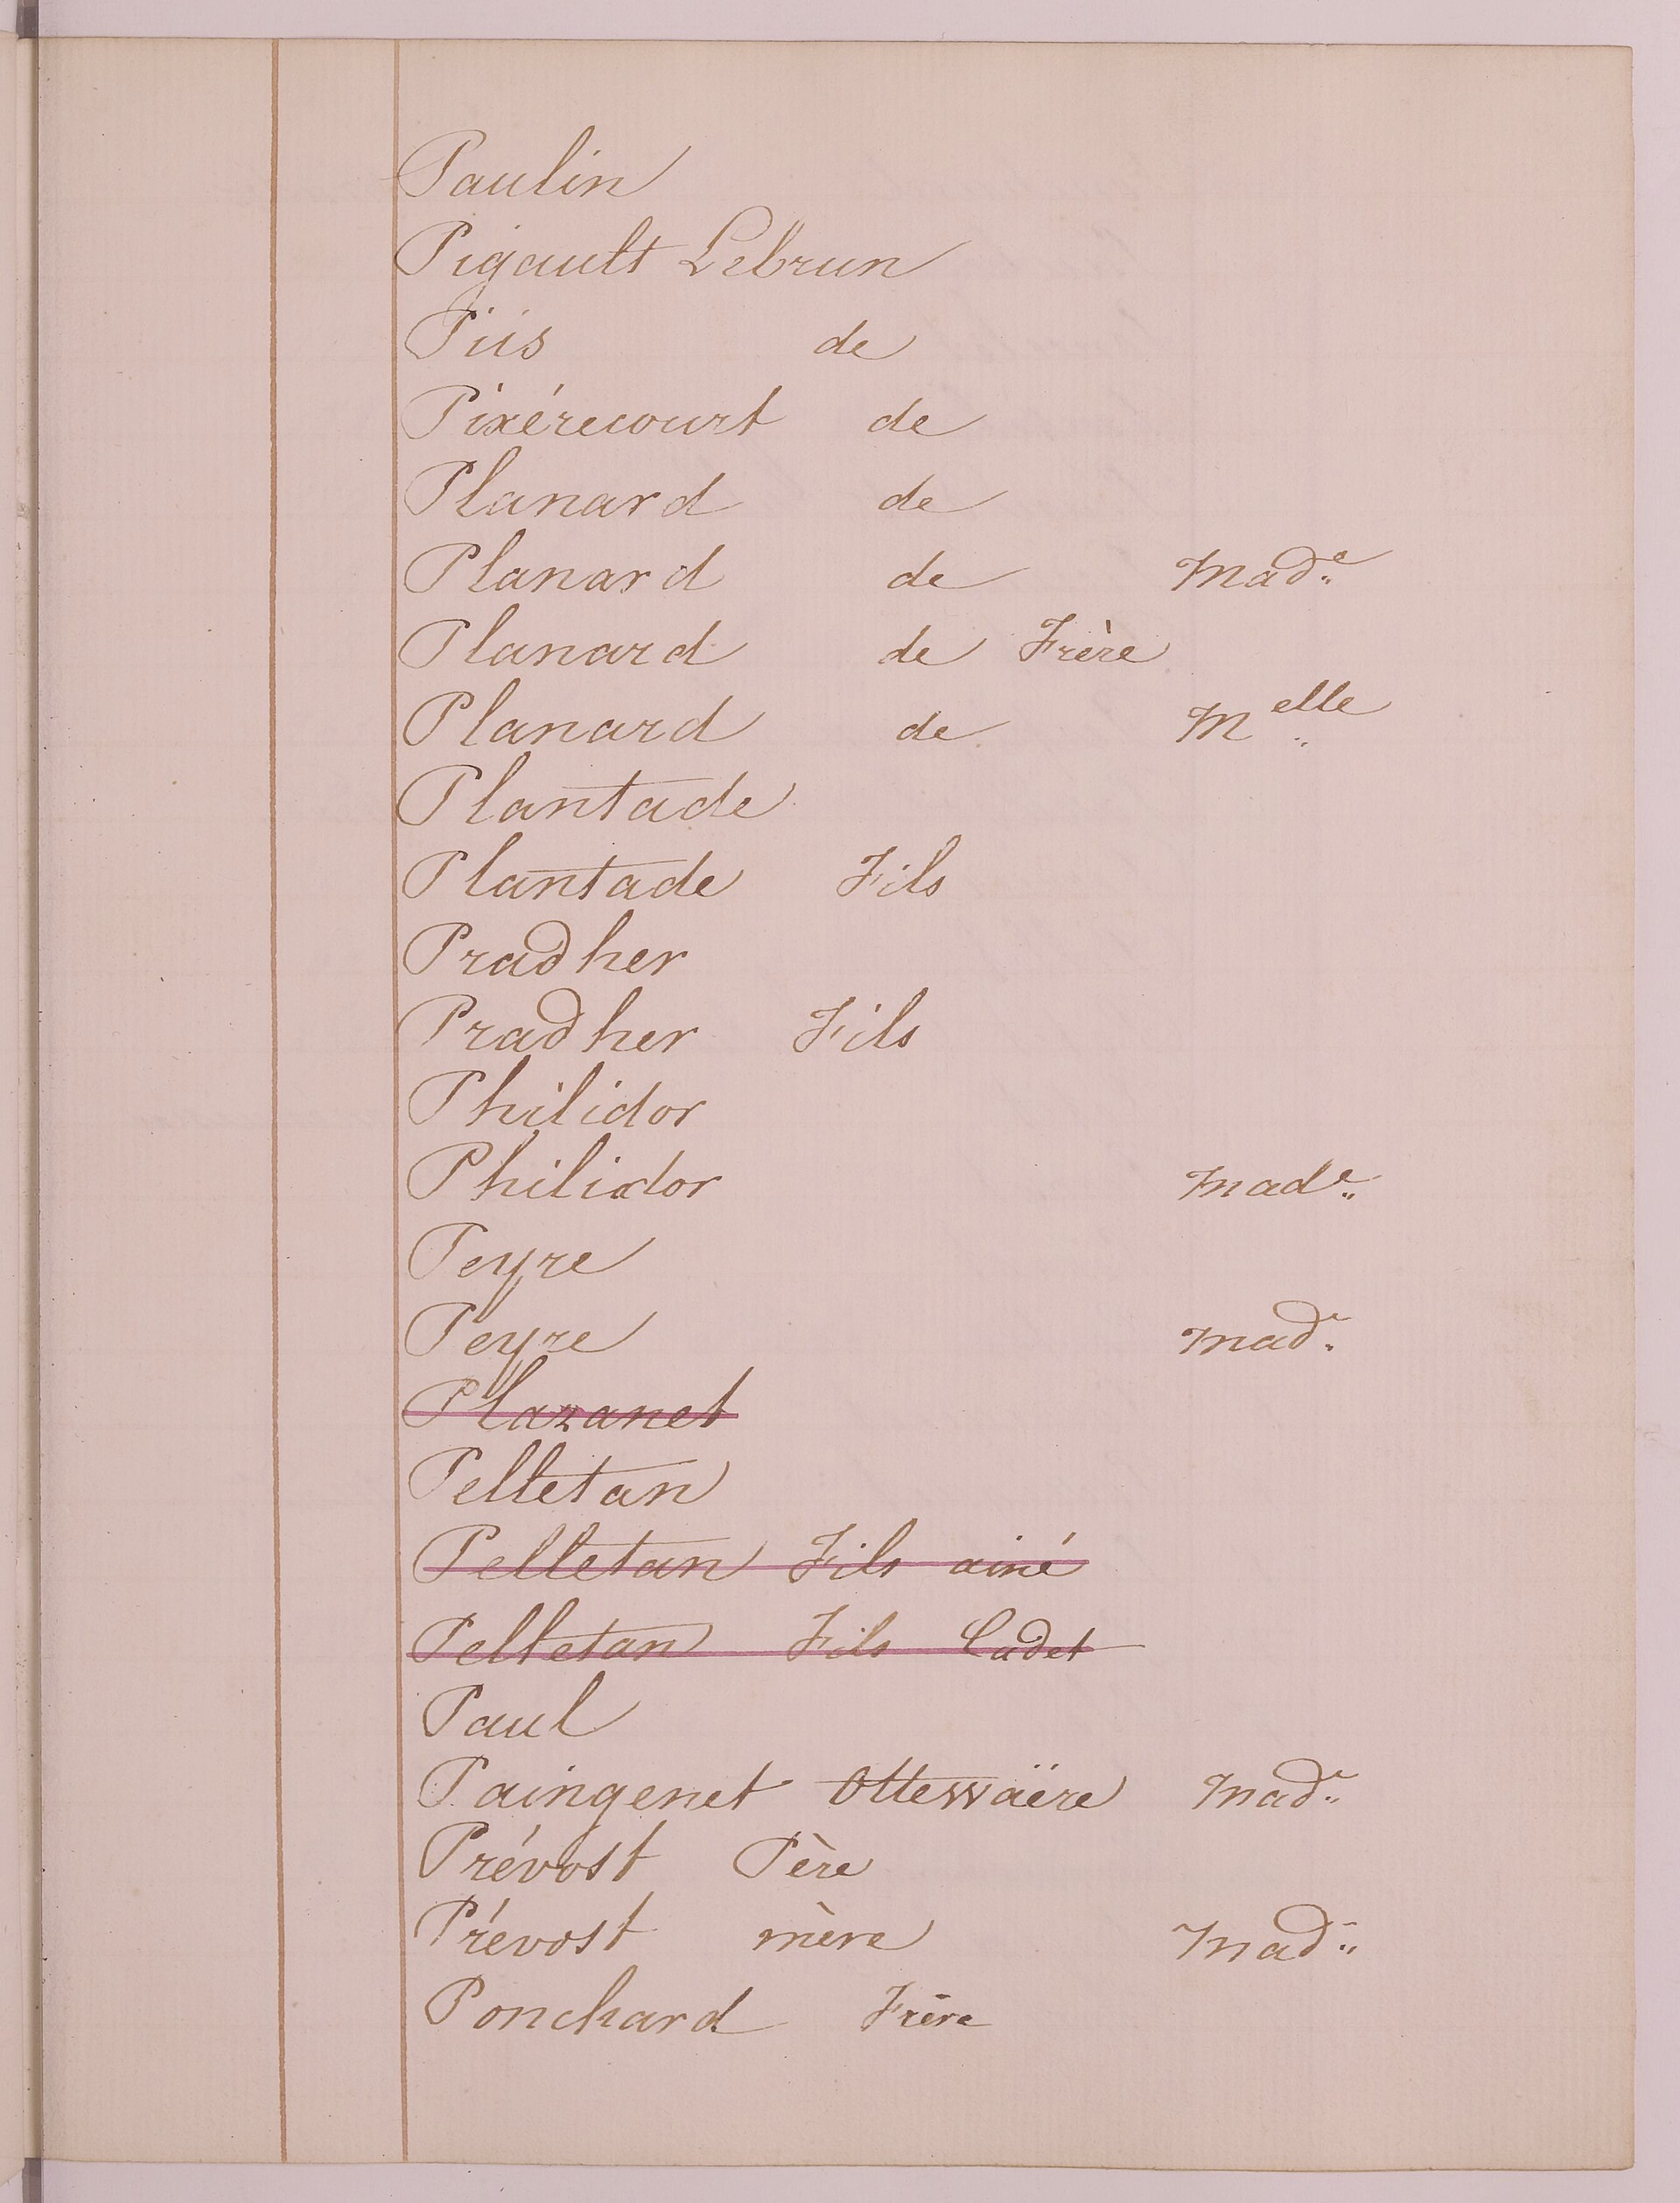 Paulin
Pigault Lebrun
Piis de
Pixérécourt de
Planard de
Planard de Made
Planard de Frère
Planard de Melle
Plantade
Plantade Fils
Pradher
Pradher Fils
Philidor
Philidor Made
Peyre
Peyre Made
Plazanet
Pelletan
Pelletan Fils ainé
Pelletan Fils Cadet
Paul
Paingenet Ottewäere Made
Prévost Père
Prévost mère Made
Ponchard Frère